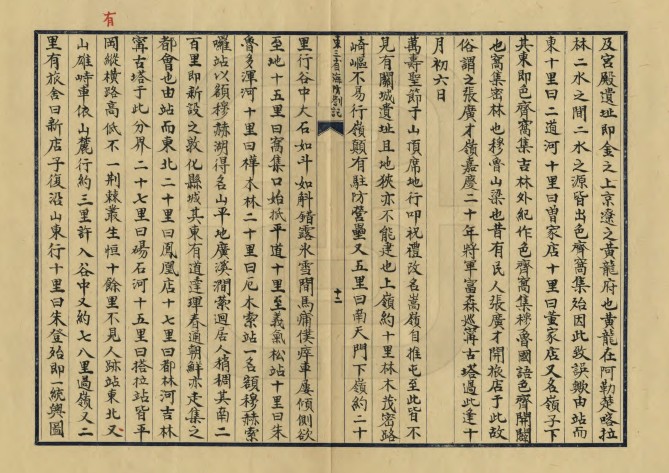 及宮殿遺址即金之上京遼之黃龍府也黃龍在阿勒楚喀拉
林二水之間二水之源皆出色齊窩集殆因此致誤歟由站而
東十里曰二道河十里曰曾家店十里曰董家店又名嶺子下
其東即色齊窩集吉林外紀作色齊窩集穆魯國語色齊開闢
也窩集密林也穆魯山梁也昔有民人張廣才開旅店于此故
俗謂之張廣才嶺嘉慶二十年將軍富森巡寗古塔過此逢十
月初六日
萬壽聖節于山頂席地行叩祝禮改名嵩嶺自推屯至此皆不
見有闢城遺址且地狹亦不能建也上嶺約十里林木茂密路
崎嶇不易行嶺顛有駐防營壘又五里曰南天門下嶺約二十
十二
里行谷中大石如斗如斛錯露氷雪間馬痡僕瘁車屢傾側欲
至地十五里曰窩集口始抵平道十里至義氣松站十里曰朱
魯多渾河十里曰樺木林二十里曰厄木索站一名額穆赫索
囉站以額穆赫湖得名山平地廣溪澗縈迴居人稍稠其南二
百里即新設之敦化縣城其東有道達琿春通朝鮮亦走集之
都會也由站而東北二十里曰鳳凰店十七里曰都林河吉林
寗古塔于此分界二十七里曰碭石河十五里曰搭拉站皆平
岡縱橫路高低不一荆棘叢生恒十餘里不見人跡站東北又
山雄峙車依山麓行約三里許入谷中又約七八里過嶺又二
里有旅舍曰新店子復沿山東行十里曰朱登殆即一統輿圖
有